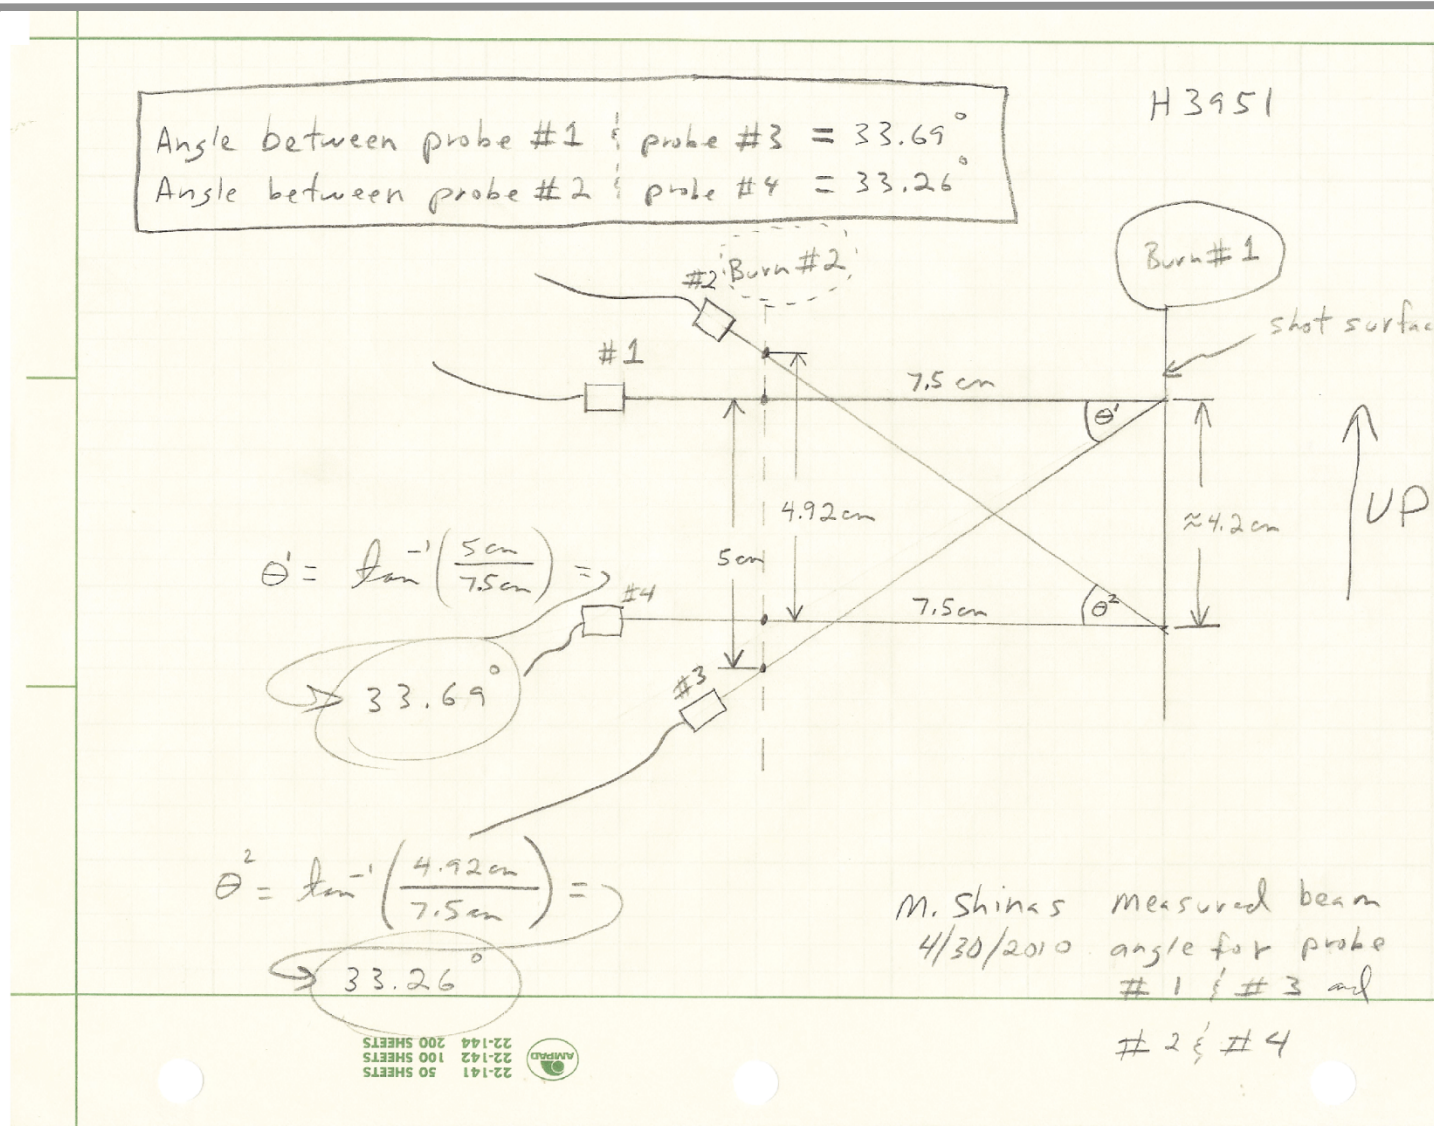 H3951
Angle between probe #1 & probe #3 = 33.69°
Angle between probe #2 & probe #4 = 33.26°
Burn #2
Burn # 1
#2
shot surfac
#1
7.5 cm
θ'
UP
4.92cm
≈4.2cm
5cm
θ' = tan⁻¹(5 cm/7.5cm) =>
#4
7.5cm
θ²
33.69°
#3
θ² = tan⁻¹(4.92cm/7.5cm) =
33.26°
M. Shinas measured beam
4/30/2010 angle for probe
# 1 & # 3 and
# 2 & # 4
22-141 50 SHEETS
22-142 100 SHEETS
22-144 200 SHEETS
AMPAD